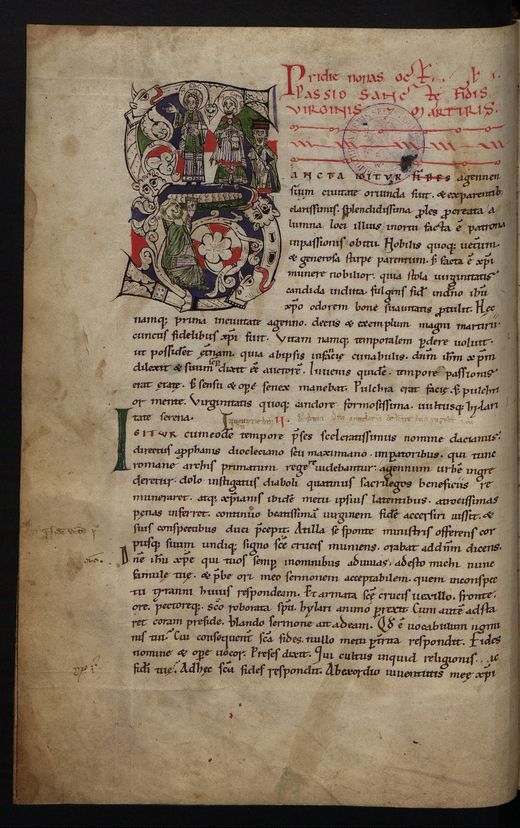 Pridie nonas oct.
PASSIO SANCTE FIDIS
VIRGINIS MARTIRIS.
ANCTA IGITUR FIDES agennen
sium ciuitate oriunda fuit. & ex parentib;
clarissimis. splendidissima ples procreata a
lumna loci illius inortu facta ē patrona
inpassionis obitu. Nobilis quoq; uetum
& generosa stirpe parentum. s; facta ē xp̄i
munere nobilior. quia stola uirginitatis
candida induta. fulgens fidē indn̄o ihū
xp̄o odorem bone suauitatis ptulit. Hec
namq; prima inciuitate agenno. decus & exemplum magni martirii
cunctis fidelibus xp̄i fuit. Vitam namq; temporalem pdere uoluit.
ut possidet etnam. quia abipsis cunabulis. dnm ihm xpm
dilexit & suum dixit eē auctorē. Iuuenis quidē tempore passionis
erat etate. s; sensu & ope senex manebat. Pulchra erat facie. s; pulchri
or mente. Virginitatis quoq; candore formosissima. uultusq; hylari
tate serena.
IGITUR cum eodē tempore pses sceleratissimus nomine dacianus.
directus apphanis diocleciano seu maximiano. impatoribus. qui tunc
romane archis primatum regere uidebantur. agennum urbē ingre
deretur. dolo instigatus diaboli quatinus sacrilegos beneficiis re
muneraret. atq; xpianis ibidē metu ipsius latentibus. atrocissimas
penas inferret. continuo beatissimā uirginem fidē accersiri iussit. &
suis conspectibus duci pcepit. At illa se sponte ministris offerens cor
pusq; suum undiq; signo scē crucis muniens. orabat addnm dicens.
Dne ihu xpe qui tuos semp inomnibus adiuuas. adesto michi nunc
famule tue. & pbe ori meo sermonem acceptabilem. quem inconspec
tu tyranni huius respondeam. Et armata scē crucis uexillo. fronte.
ore. pectoreq; sco roborata spu hylari animo prexit. Cum autē adsta
ret coram preside. blando sermone ait ad eam. Qd ē uocabulum nomi
nis tui. Cui consequent scā fides. nullo metu prita respondit. Fides
nomine & ope uocor. Preses dixit. Qui cultus inquid religionis ac
fidei tue. Ad hec scā fides respondit. Ab exordio iuuentutis meę xp̄i